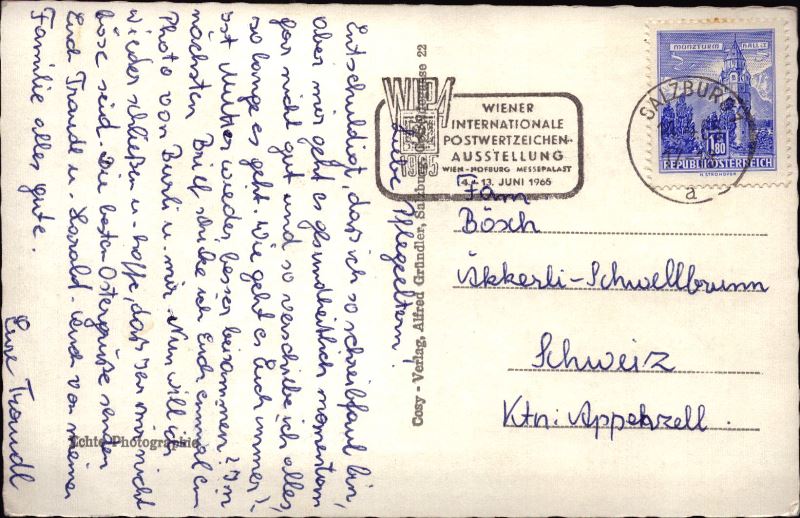 Liebe Pflegeeltern,
Entschuldigt, dass ich so schreibfaul bin,
aber mir geht es gesundheitlich momentan
gar nicht gut und so verschiebe ich alles,
so lange es geht. Wie geht es Euch immer?
Ist Mutter wieder besser beisammen? Im
nächsten Brief schicke ich Euch einmal ein
Photo von Burli u. mir. Nun will ich
wieder schließen u. hoffe, dass Ihr mir nicht
böse seid. Die besten Ostergrüße senden
Euch Traude u. Harald. Auch von meiner
Familie alles gute.
Eure Traudl
Echte Photographie
Cosy - Verlag, Alfred Gründler, Salzburg, 22
WIPA
1965
WIENER
INTERNATIONALE
POSTWERTZEICHEN-
AUSSTELLUNG
WIEN-HOFBURG MESSEPALAST
4.-13. JUNI 1965
SALZBURG 2
a
MÜNZTURM HALL i.T.
S 1.80
REPUBLIK ÖSTERREICH
H. STROHOFER
Fam
Bösch
Äkkerli-Schwellbrunn
Schweiz
Ktn: Appenzell.